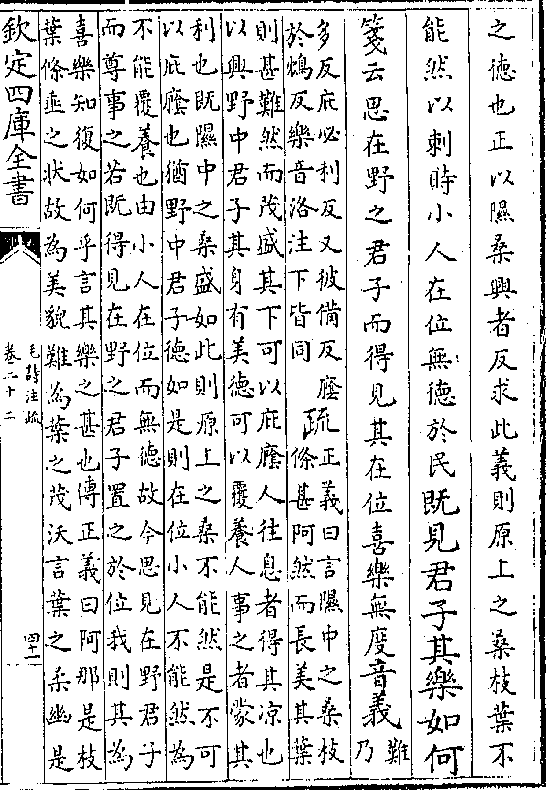 之德也正以隰桑興者反求此義則原上之桑枝葉不
能然以刺時小人在位無德於民既見君子其樂如何
箋云思在野之君子而得見其在位喜樂無度音義難乃
多反庇必利反又彼備反廕
於鴆反樂音洛注下皆同
疏
正義曰言隰中之桑枝
條甚阿然而長美其葉
則甚難然而茂盛其下可以庇廕人往息者得其凉也
以興野中君子其身有美德可以覆養人事之者蒙其
利也既隰中之桑盛如此則原上之桑不能然是不可
以庇廕也猶野中君子德如是則在位小人不能然為
不能覆養也由小人在位而無德故今思見在野君子
而尊事之若既得見在野之君子置之於位我則其為
喜樂知復如何乎言其樂之甚也傳正義曰阿那是枝
葉條垂之狀故為美貌難為葉之茂沃言葉之柔幽是
欽定四庫全書
毛詩注疏
卷二十二
四十一